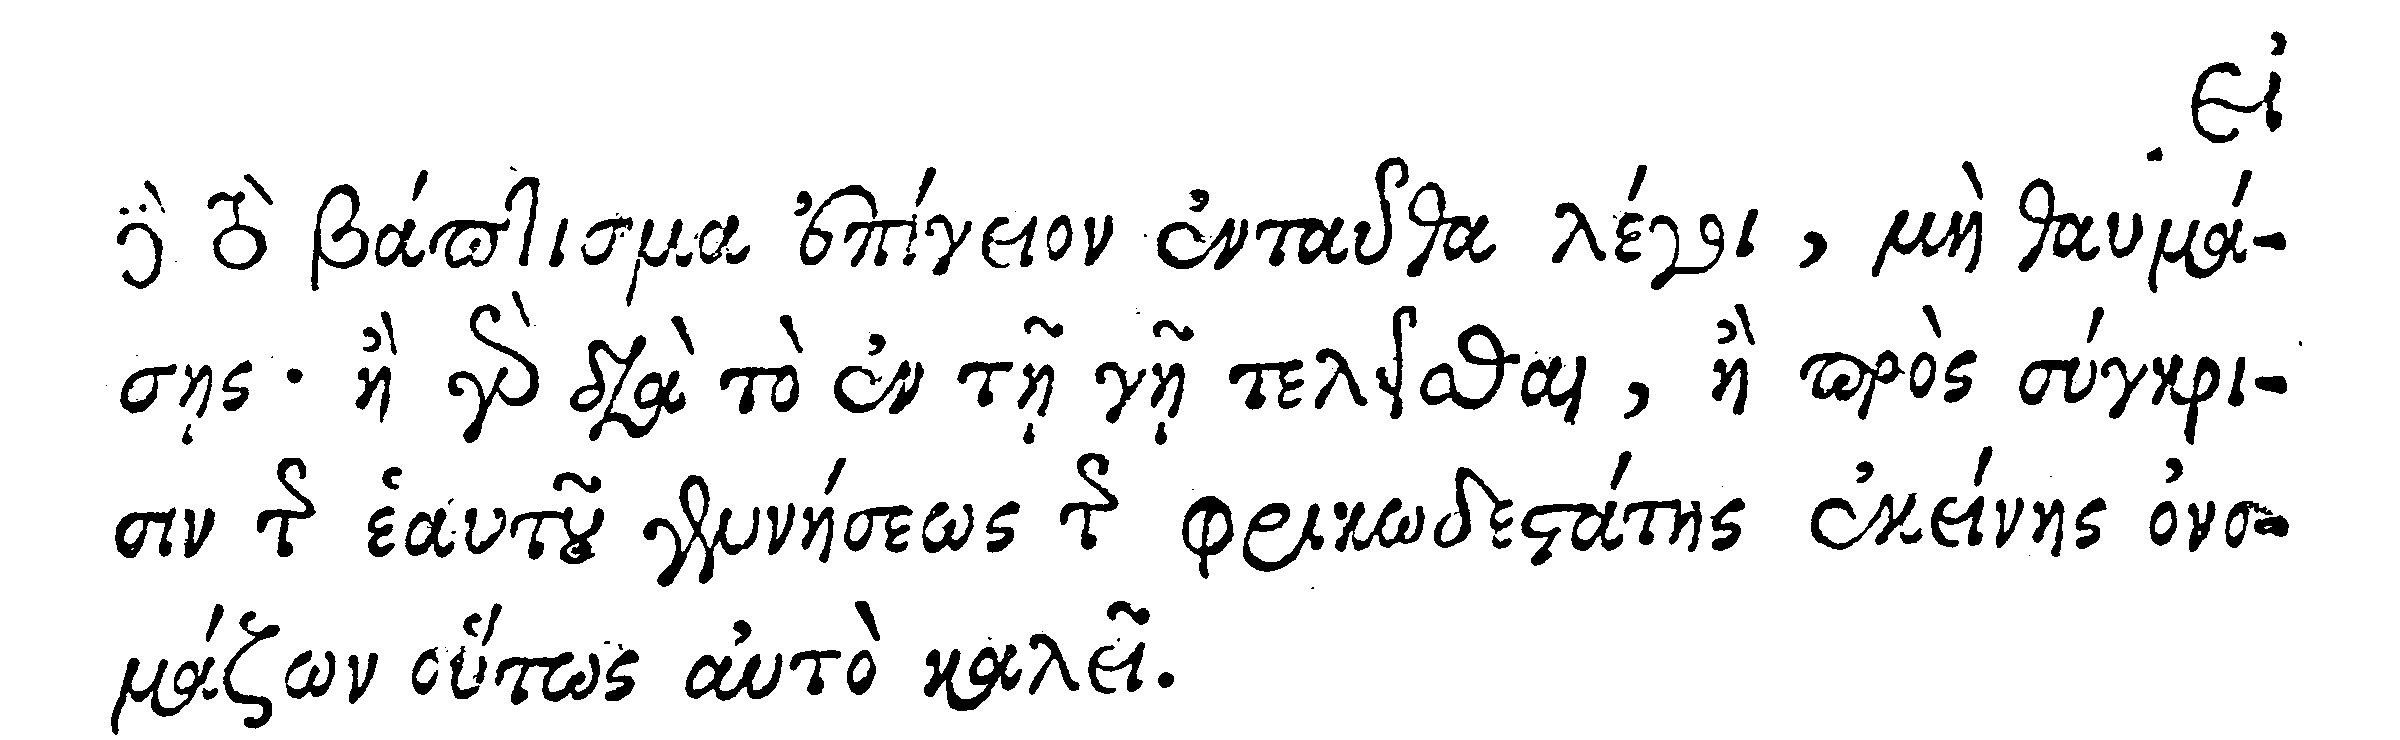 εἰ
ϗ̈ τὸ βάπτισμα ἐπίγειον ἐνταῦθα λέγει, μὴ θαυμά-
σῃς· ἢ γὰρ διὰ τὸ ἐν τῇ γῇ τελεῖσθαι, ἢ πρὸς σύγκρι-
σιν τῆς ἑαυτοῦ γεννήσεως τῆς φρικωδεστάτης ἐκείνης ὀνο-
μάζων οὕτως αὐτὸ καλεῖ.